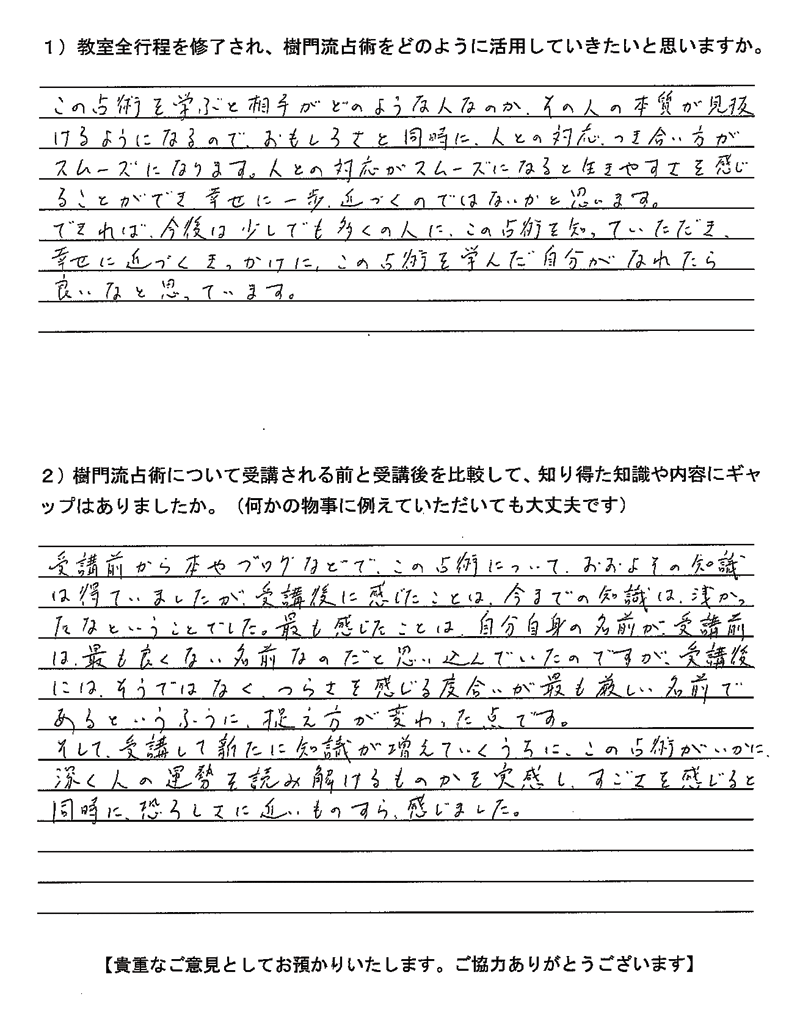 1）教室全行程を修了され、樹門流占術をどのように活用していきたいと思いますか。
この占術を学ぶと相手がどのような人なのか、その人の本質が見抜
けるようになるので、おもしろさと同時に、人との対応、つき合い方が
スムーズになります。人との対応がスムーズになると生きやすさを感じ
ることができ、幸せに一歩、近づくのではないかと思います。
できれば、今後は少しでも多くの人に、この占術を知っていただき、
幸せに近づくきっかけに、この占術を学んだ自分がなれたら
良いなと思っています。
2）樹門流占術について受講される前と受講後を比較して、知り得た知識や内容にギャ
ップはありましたか。（何かの物事に例えていただいても大丈夫です）
受講前から本やブログなどで、この占術について、おおよその知識
は得ていましたが、受講後に感じたことは、今までの知識は、浅かっ
たなということでした。最も感じたことは、自分自身の名前が、受講前
は、最も良くない名前なのだと思い込んでいたのですが、受講後
には、そうではなく、つらさを感じる度合いが最も厳しい名前で
あるというふうに、捉え方が変わった点です。
そして、受講して新たに知識が増えていくうちに、この占術がいかに、
深く人の運勢を読み解けるものかを実感し、すごさを感じると
同時に、恐ろしさに近いものすら、感じました。
【貴重なご意見としてお預かりいたします。ご協力ありがとうございます】